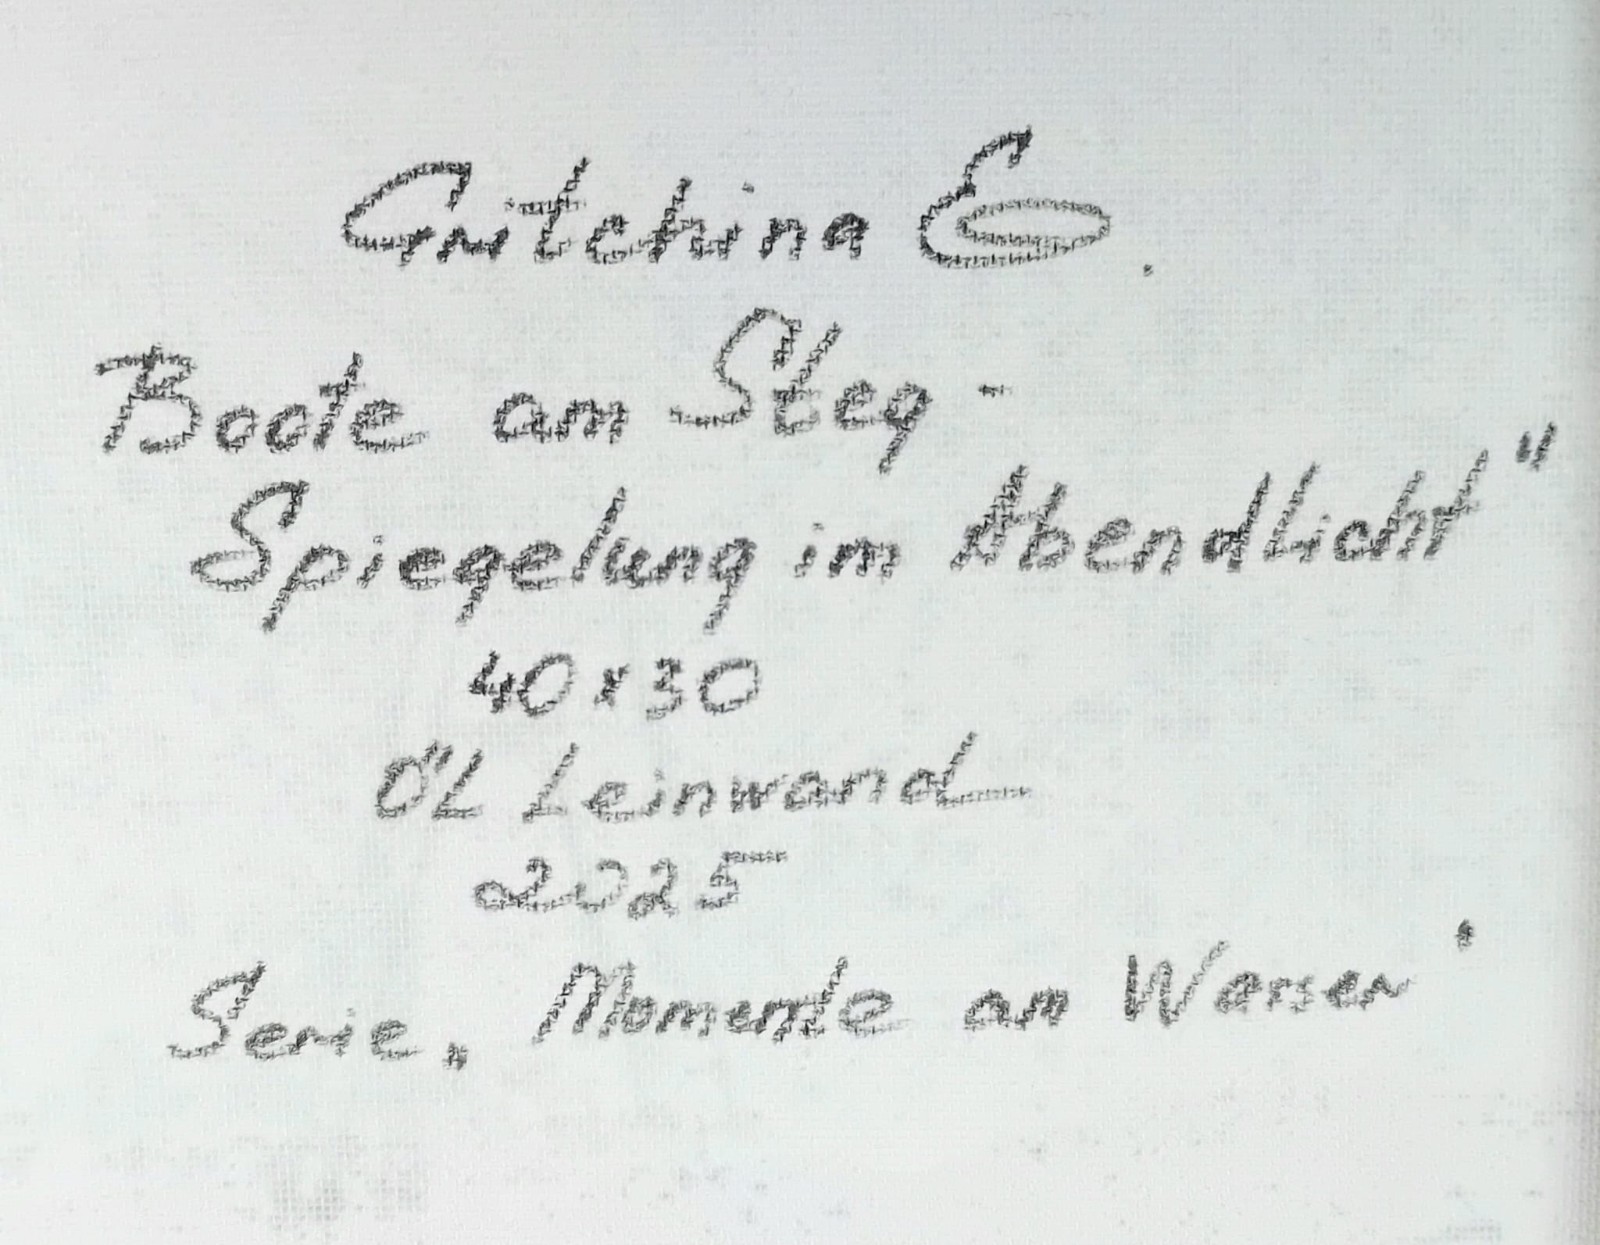 Gutchina E.
Boote am Steg -
Spiegelung im Abendlicht"
40x30
ÖL Leinwand
2025
Serie, Momente am Wasser'